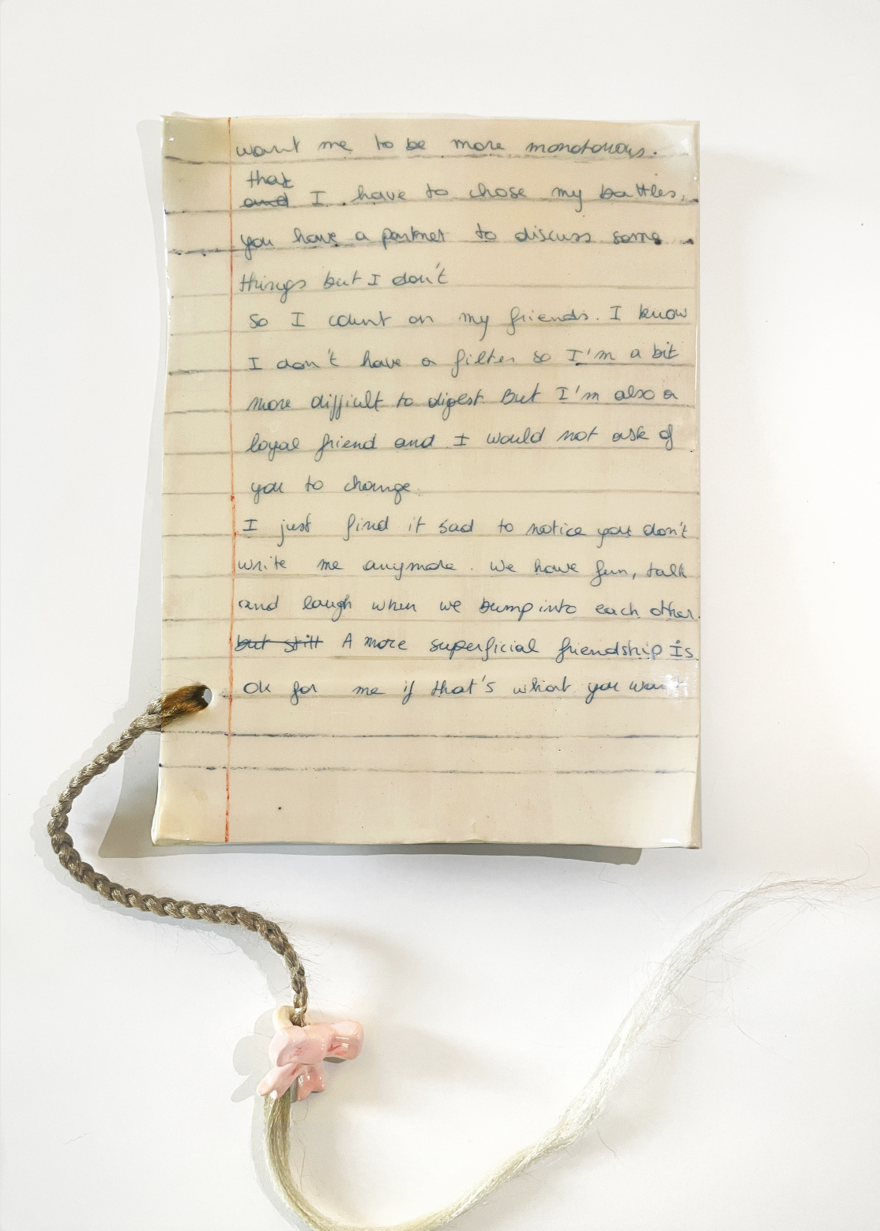 want me to be more monotonous.
that
and I have to chose my battles.
you have a partner to discuss some
things but I don't
so I count on my friends. I know
I don't have a filter so I'm a bit
more difficult to digest But I'm also a
loyal friend and I would not ask of
you to change.
I just find it sad to notice you don't
write me anymore. We have fun, talk
and laugh when we bump into each other.
but still A more superficial friendship is
ok for me if that's what you want